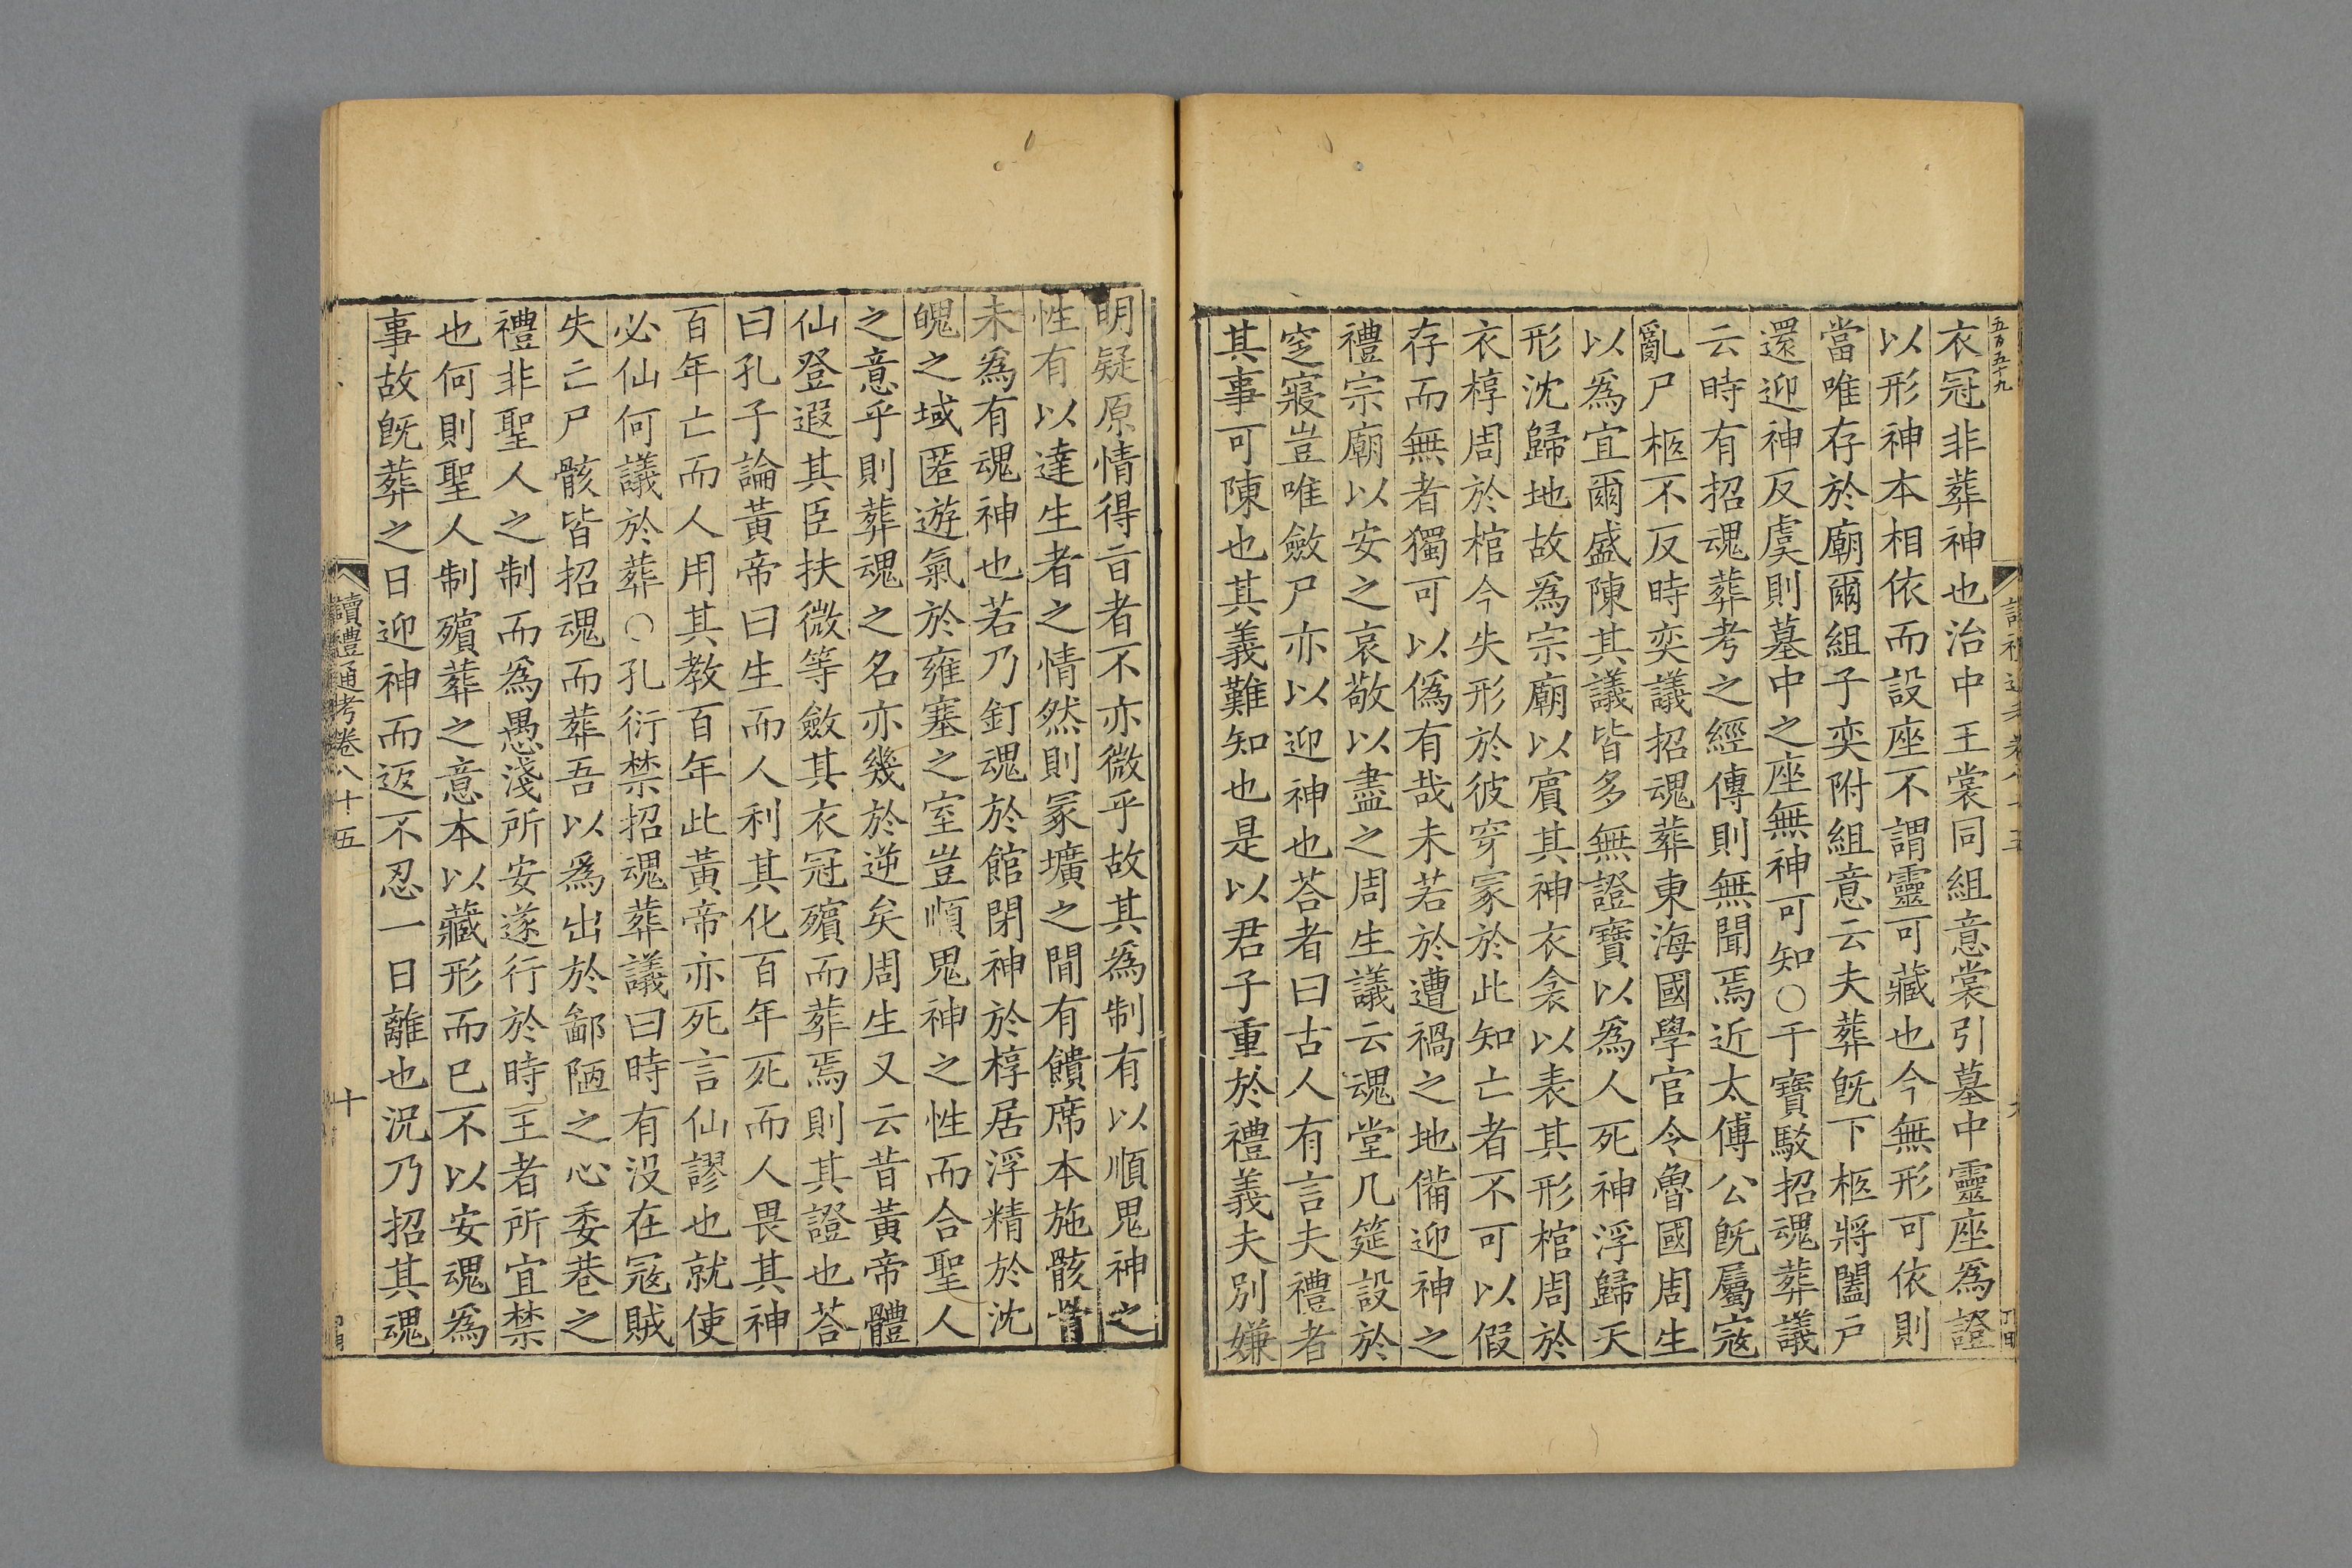 五百五十九
衣冠非葬神也治中王裳同組意裳引墓中靈座爲證
以形神本相依而設座不謂靈可藏也今無形可依則
當唯存於廟爾組子奕附組意云夫葬旣下柩將闔戶
還迎神反虞則墓中之座無神可知○干寶駁招魂葬議
云時有招魂葬考之經傳則無聞焉近太傅公旣屬寇
亂尸柩不反時奕議招魂葬東海國學官令魯國周生
以爲宜爾盛陳其議皆多無證寶以爲人死神浮歸天
形沈歸地故爲宗廟以賓其神衣衾以表其形棺周於
衣椁周於棺今失形於彼穿冢於此知亡者不可以假
存而無者獨可以僞有哉未若於遭禍之地備迎神之
禮宗廟以安之哀敬以盡之周生議云魂堂几筵設於
窆寢豈唯斂尸亦以迎神也荅者曰古人有言夫禮者
其事可陳也其義難知也是以君子重於禮義夫別嫌
明疑原情得亓者不亦微乎故其爲制有以順鬼神之
性有以達生者之情然則冢壙之間有饋席本施骸骨
未爲有魂神也若乃釘魂於館閉神於椁居浮精於沈
魄之域匿遊氣於雍塞之室豈順鬼神之性而合聖人
之意乎則葬魂之名亦幾於逆矣周生又云昔黃帝體
仙登遐其臣扶微等斂其衣冠殯而葬焉則其證也荅
曰孔子論黃帝曰生而人利其化百年死而人畏其神
百年亡而人用其教百年此黃帝亦死言仙謬也就使
必仙何議於葬○孔衍禁招魂葬議曰時有没在寇賊
失亡尸骸皆招魂而葬吾以爲出於鄙陋之心委巷之
禮非聖人之制而爲愚淺所安遂行於時王者所宜禁
也何則聖人制殯葬之意本以藏形而已不以安魂爲
事故旣葬之日迎神而返不忍一日離也況乃招其魂
讀禮通考卷八十五 十